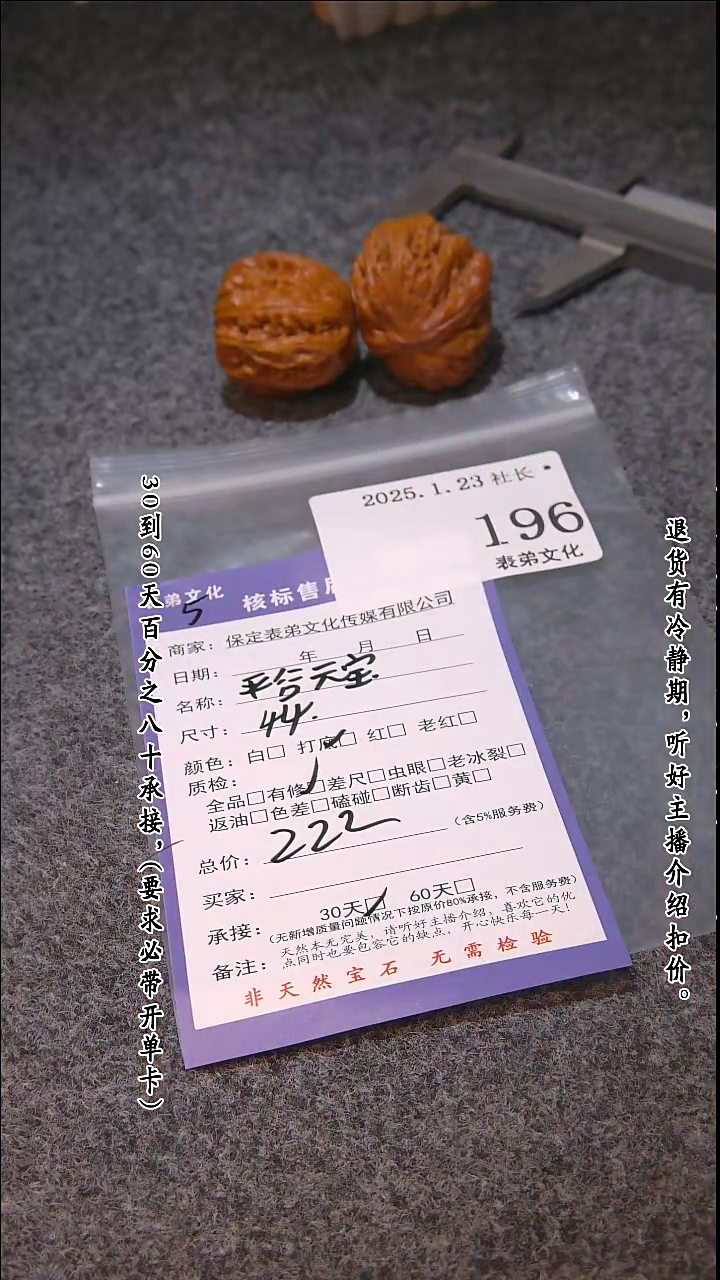 2025.1.23 社长
196
表弟文化
弟文化
5
核标售后
商家：保定表弟文化传媒有限公司
日期： 年 月 日
名称：平谷元宝
尺寸：44.
颜色：白□ 打底□ 红□ 老红□
质检：
全品□有修□差尺□虫眼□老冰裂□
返油□色差□磕碰□断齿□黄□
总价：222 （含5%服务费）
买家：
承接：30天□ 60天□
（无新增质量问题情况下按原价80%承接，不含服务费）
备注：天然本无完美，请听好主播介绍，喜欢它的优
点同时也要包容它的缺点，开心快乐每一天！
非天然宝石 无需检验
30到60天百分之八十承接，（要求必带开单卡）
退货有冷静期，听好主播介绍扣价。